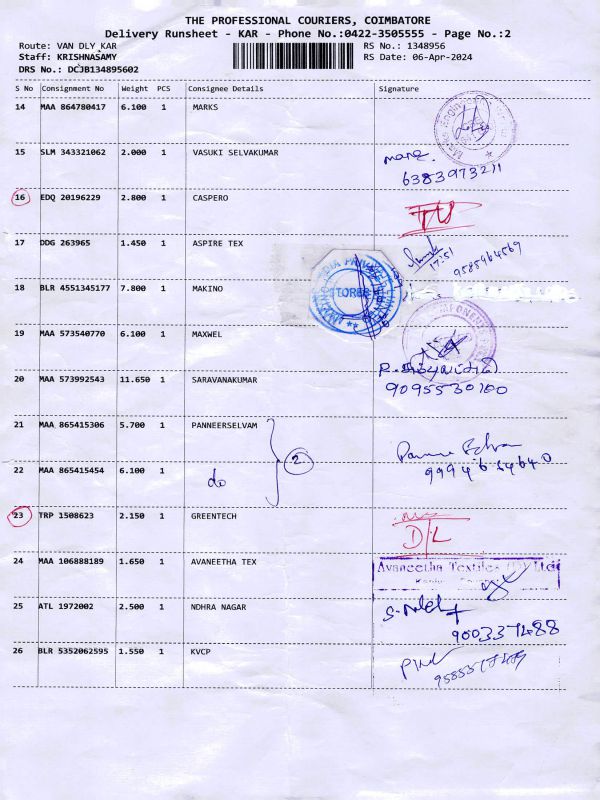 THE PROFESSIONAL COURIERS, COIMBATORE
Delivery Runsheet - KAR - Phone No.:0422-3505555 - Page No.:2
Route: VAN DLY KAR RS No.: 1348956
Staff: KRISHNASAMY RS Date: 06-Apr-2024
DRS No.: DCJB134895602
S No Consignment No Weight PCS Consignee Details Signature
14 MAA 864780417 6.100 1 MARKS
15 SLM 343321062 2.000 1 VASUKI SELVAKUMAR
6383973211
16 EDQ 20196229 2.800 1 CASPERO
17 DDG 263965 1.450 1 ASPIRE TEX
17:51 9585964569
18 BLR 4551345177 7.800 1 MAKINO
STORES
19 MAA 573540770 6.100 1 MAXWEL
20 MAA 573992543 11.650 1 SARAVANAKUMAR
9095530100
21 MAA 865415306 5.700 1 PANNEERSELVAM
2
22 MAA 865415454 6.100 1 do
23 TRP 1508623 2.150 1 GREENTECH
D/L
24 MAA 106888189 1.650 1 AVANEETHA TEX
Avaneetha Textiles (P) Ltd
25 ATL 1972002 2.500 1 NDHRA NAGAR
9003371488
26 BLR 5352062595 1.550 1 KVCP